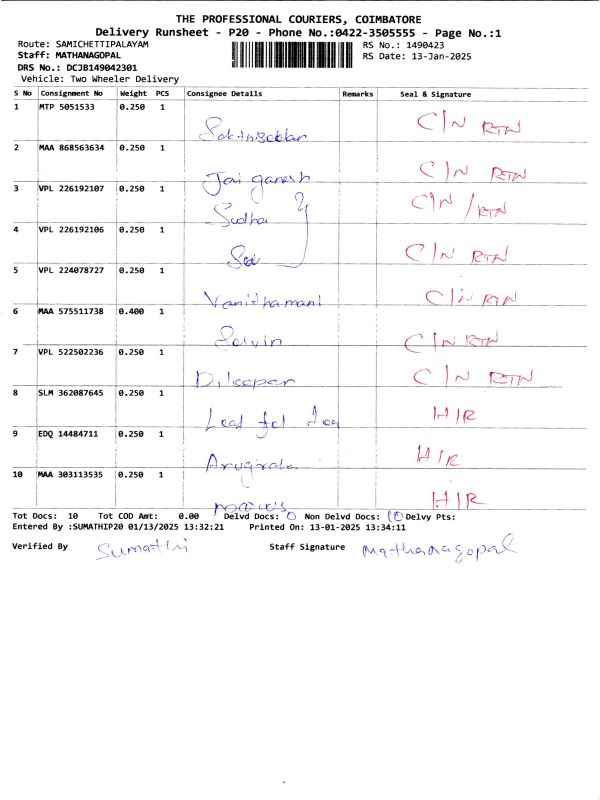 THE PROFESSIONAL COURIERS, COIMBATORE
Delivery Runsheet - P20 - Phone No.:0422-3505555 - Page No.:1
Route: SAMICHETTIPALAYAM RS No.: 1490423
Staff: MATHANAGOPAL RS Date: 13-Jan-2025
DRS No.: DCJB149042301
Vehicle: Two Wheeler Delivery
S No Consignment No Weight PCS Consignee Details Remarks Seal & Signature
1 MTP 5051533 0.250 1 C/N RTN
2 MAA 868563634 0.250 1 Jai ganesh C/N RTN
3 VPL 226192107 0.250 1 Sudha C/N / RTN
4 VPL 226192106 0.250 1 C/N RTN
5 VPL 224078727 0.250 1 Vanithamani C/N RTN
6 MAA 575511738 0.400 1 Selvin C/N RTN
7 VPL 522502236 0.250 1 C/N RTN
8 SLM 362087645 0.250 1 H/R
9 EDQ 14484711 0.250 1 H/R
10 MAA 303113535 0.250 1 H/R
Tot Docs: 10 Tot COD Amt: 0.00 Delvd Docs: 0 Non Delvd Docs: 10 Delvy Pts:
Entered By :SUMATHIP20 01/13/2025 13:32:21 Printed On: 13-01-2025 13:34:11
Verified By Sumathi Staff Signature Mathanagopal